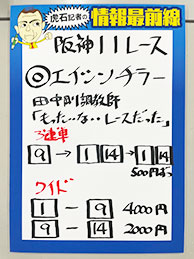 虎石記者の
情報最前線
阪神11レース
◎エイシンチラー
田中剛調教師
「もったいないレースだった」
3連単
9→1 14→1 14
500円ずつ
ワイド
1－9 4000円
9－14 2000円